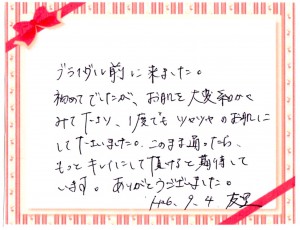 ブライダル前に来ました。
初めてでしたが、お肌を大変和かく
みて下さり、1度でもツルツヤのお肌に
して下さいました。このまま通ったら、
もっとキレイにして頂けると期待して
います。ありがとうございました。
H26. 9. 4 友里